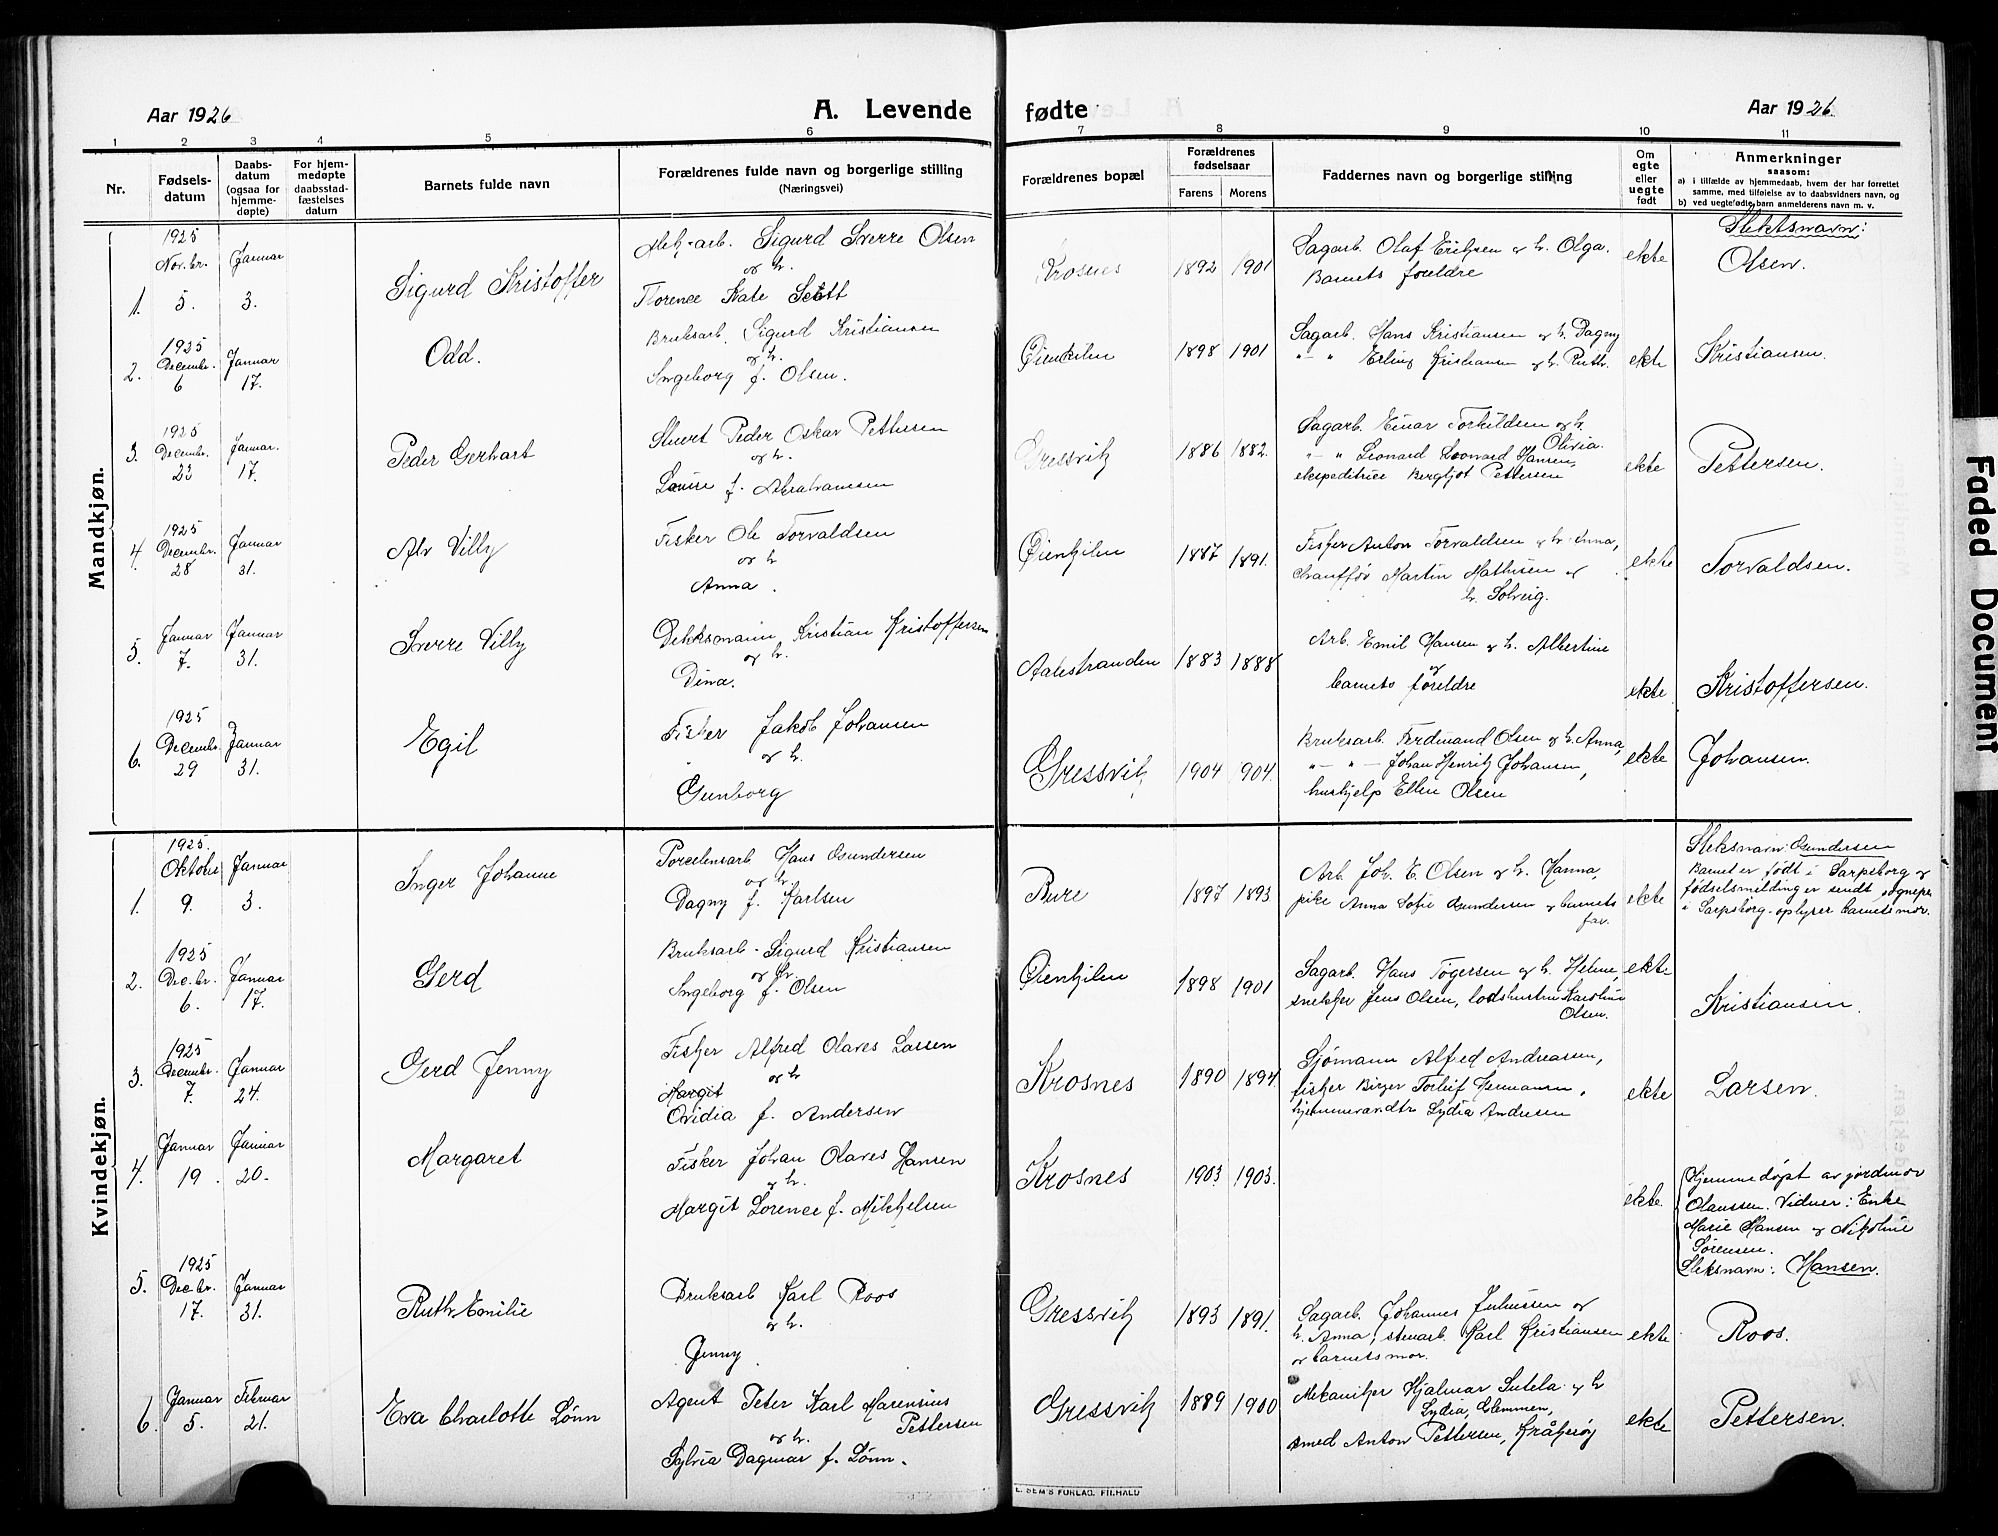 Aar 1926
A. Levende
fødte
Aar 1926.
1 2 3 4 5 6 7 8 9 10 11
Nr.
Fødsels-
datum
Daabs-
datum
(ogsaa for
hjemme-
døpte)
For hjem-
medøpte
daabsstad-
fæstelses
datum
Barnets fulde navn
Forældrenes fulde navn og borgerlige stilling
(Næringsvei)
Forældrenes bopæl
Forældrenes
fødselsaar
Farens Morens
Faddernes navn og borgerlige stilling
Om
egte
eller
uegte
født
Anmerkninger
saasom:
a) i tilfælde av hjemmedaab, hvem der har forrettet
samme, med tilføielse av to daabsvidners navn, og
b) ved uegtefødte barn anmelderens navn m. v.
Mandkjøn.
1925
Nov.br. Januar
1. 5. 3.
Sigurd Kristoffer
Mek.arb. Sigurd Sverre Olsen
og h.
Florence Kate Scott
Krosnes 1892 1901
Sagarb. Olaf Eriksen og h. Olga.
Barnets foreldre
ekte
Slektsnavn:
Olsen.
1925
Decembr. Januar
2. 6 17.
Odd.
Bruksarb. Sigurd Kristiansen
og h.
Ingeborg f. Olsen.
Øienkilen 1898 1901
Sagarb. Hans Kristiansen og h. Dagny
" - " Erling Kristiansen og h. Ruth.
ekte
Kristiansen.
1925
Decembr. Januar.
3. 23 17.
Peder Gerhart
Stuert Peder Oskar Pettersen
og h.
Louise f. Abrahamsen
Gressvik 1886 1882.
Sagarb. Einar Torkildsen og h.
Olivia.
" - " Leonard Leonard Hansen,
ekspeditrice Bergljot Pettersen
ekte
Pettersen.
1925
Decembr. Januar
4. 28 31.
Alv Villy
Fisker Ole Torvaldsen
og h
Anna.
Øienkilen 1887 1891.
Fisker Anton Torvaldsen og h. Anna,
chauffør Martin Mathisen og
h. Solveig.
ekte
Torvaldsen.
Januar Januar
5. 7. 31.
Sverre Villy
Dekksmann Kristian Kristoffersen
og h.
Dina.
Aalestranden 1883 1888
Arb. Emil Hansen og h. Albertine
og
barnets foreldre
ekte
Kristoffersen.
1925
Decembr. Januar
6. 29 31.
Egil
Fisker Jakob Johansen
og h.
Gunborg
Gressvik 1904 1904.
Bruksarb. Ferdinand Olsen og h. Anna,
" - " - Johan Henrik Johansen,
hushjelp Ellen Olsen
ekte
Johansen.
Kvindekjøn.
1925.
Oktober Januar
1. 9. 3.
Inger Johanne
Porselensarb Hans Gundersen
og h.
Dagny f. Karlsen
Bure 1897 1893
Arb. Joh. E. Olsen og h. Hanna,
pike Anna Sofie Gundersen og barnets
far.
ekte
Sleksnavn: Gundersen
Barnet er født i Sarpsborg og
fødselsmelding er sendt sognepr.
i Sarpsborg. oplyser barnets mor.
1925
Dec.br. Januar
2. 6. 17.
Gerd
Bruksarb. Sigurd Kristiansen
og h.
Ingeborg f. Olsen
Øienkilen 1898 1901
Sagarb. Hans Tøgersen og h. Helene,
snekker Jens Olsen, lodshustru Karoline
Olsen.
ekte
Kristiansen.
1925
Decembr. Januar
3. 7. 24.
Gerd Jenny
Fisker Alfred Olaves Larsen
Margit og h
Ovidia f. Andersen
Krosnes 1890 1894.
Sjømann Alfred Andreassen,
fisker Birger Torleif Hermansen,
hjemmevær.dtr Lydia Andersen
ekte
Larsen.
Januar Januar
4. 19. 20.
Margaret
Fisker Johan Olaves Hansen
og h.
Margit Lorence f. Mikkelsen
Krosnes 1903 1903.
ekte.
Hjemmedøpt av jordmor
Olaussen. Vidner: Enke
Marie Hansen og Nikoline
Sørensen.
Sleksnavn: Hansen.
1925
Dec.br. Januar
5. 17. 31.
Ruth Emilie
Bruksarb Karl Roos
og h.
Jenny
Gressvik 1893 1891.
Sagarb. Johannes Juliussen og
h. Anna, stenarb. Karl Kristiansen
og barnets mor.
ekte
Roos.
Januar Februar
6. 5. 21.
Eva Charlotte Lønn
Agent Peter Karl Marensius
Pettersen
og h.
Sylvia Dagmar f. Lønn.
Gressvik 1889 1900
Mekaniker Hjalmar Sutela og h
Lydia, Glemmen,
smed Anton Pettersen, Kråkerøy
ekte
Pettersen.
E. SEM'S FORLAG, FR.HALD
Faded Document